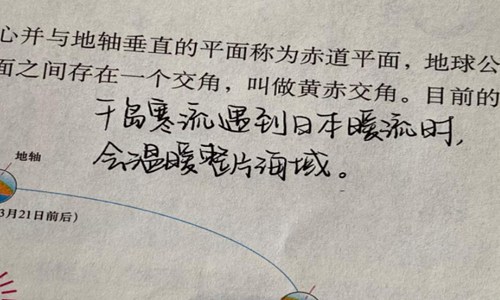 心并与地轴垂直的平面称为赤道平面，地球公
面之间存在一个交角，叫做黄赤交角。目前的
千岛寒流遇到日本暖流时，
会温暖整片海域。
地轴
3月21日前后）